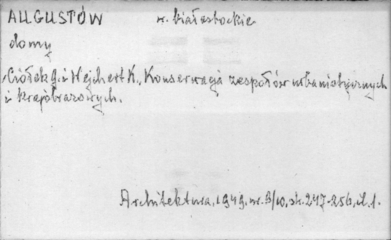 AUGUSTÓW w. białostockie
domy
Ciołek G. i Wejchert K., Konserwacja zespołów urbanistycznych
i krajobrazowych.
Architektura, 1949, nr. 9/10, str. 247-256, il. 1.